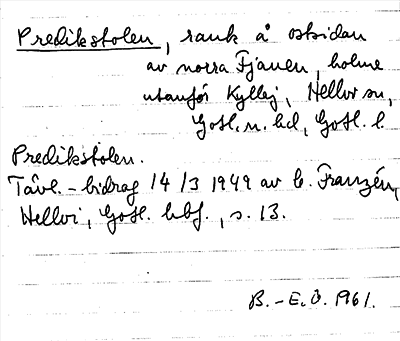 Predikstolen, rauk å ostsidan
av norra Fjauen, holme
utanför Kyllej, Hellvi sn,
Gotl. n. hd, Gotl. l.
Predikstolen.
Tävl.-bidrag 14/3 1949 av C. Franzén,
Hellvi, Gotl. hbf., s. 13.
B.-E. O. 1961.